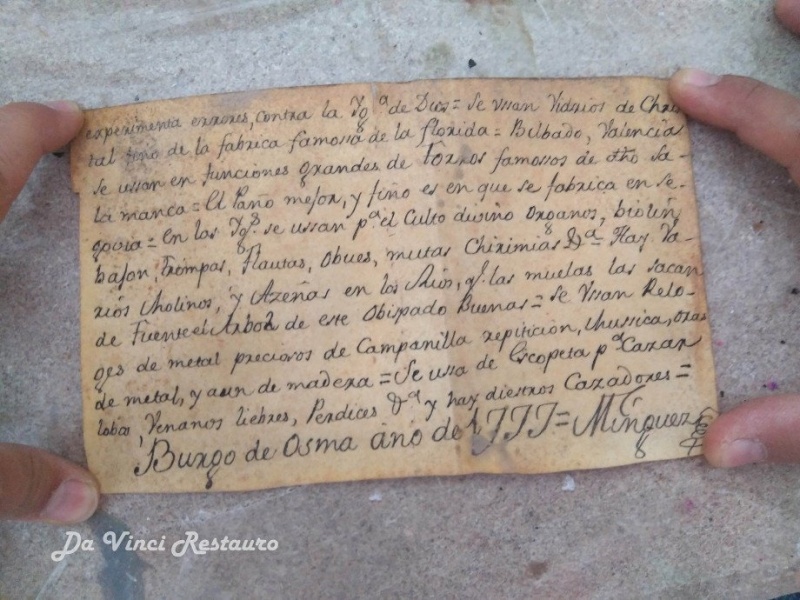 experimenta errores, contra la Ygª de Dios = Se vsan Vidrios de Chris
tal fino de la fabrica famossa de la florida = Bilbado, Valencia
se ussan en funciones grandes de torros famossos de dho Sa-
lamanca = El Paño mejor, y fino es en que se fabrica en Se-
govia = en las Ygˢ se ussan pª el Culto divino Organos, biolin,
bajon, trompas, flautas, obues, muias Chirimias &ª = Hay va-
rios Molinos, y Azeñas en los Rios, qᵉ las muelas las sacan
de Fuente el Arbol de este Obispado Buenas = Se vsan Relo-
ges de metal preciosos de Campanilla repiticion, Mussica, oras
de metal, y aun de madera = Se ussa de Escopeta pª Cazar
lobos, Venaños liebres, Perdices &ª y hay diestros Cazadores =
Burgo de Osma año de 1777 = Minguez
Da Vinci Restauro